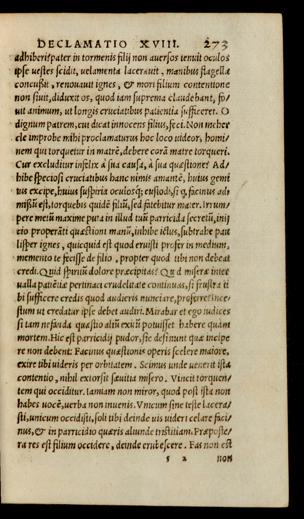 DECLAMATIO XVIII. 273
adhiberi? pater in tormenis filij non auersos tenuit oculos
ipse uestes scidit, uelamenta lacerauit, manibus flagella
concussit, renouauit ignes, & mori filium contentione
non siuit, diduxit os, quod iam suprema claudebant, fo/
uit animum, ut longis cruciatibus patientia sufficeret. O
dignum patrem, cui dicat innocens filius, feci. Non mehercu
le improbe mihi proclamaturus hoc loco uideor, homi/
nem qui torquetur in matrē, debere corā matre torqueri.
Cur excluditur infelix à sua causa, à sua quæstione? Ad/
hibe speciosi cruciatibus hanc nimis amantē, huius gemi
tus excipe, huius suspiria oculosq; custodi, si q̨ facinus ad/
missū est, torquebis quidē filiū, sed fatebitur mater. Irrum/
pere meū maxime puta in illud tuū parricida secretū, inij
cio properāti quæstioni manū, inhibe ictus, subtrahe pau
lisper ignes, quicquid est quod eruisti profer in medium,
memento te fecisse de filio, propter quod tibi non debeat
credi. Quid spiritū dolore præcipitas? Quid miseræ inter
ualla patiētiæ pertinaci crudelitate continuas, si frustra ti
bi sufficere credis quod audieris nunciare, proferre ince/
stum ut credatur ipse debet audiri. Mirabar et ego iudices
si tam nefanda quæstio aliū exitū potuisset habere quàm
mortem. Hic est parricidij pudor, sic definunt quæ incipe
re non debent: Facinus quæstionis operis scelere maiore,
exire tibi uideris per orbitatem. Scimus unde uenerit ista
contentio, nihil extorsit sæuitia misero. Vincit torquen/
tem qui occiditur. Iam iam non miror, quod post ista non
habes uocē, uerba non inuenis. Vnicum sine teste lacera/
sti, unicum occidisti, soli tibi deinde uis uideri celare faci/
nus, & in parricidio quæris aliunde tristitiam. Præposte/
ra res est filium occidere, deinde erubescere. Fas non est
s 2 non